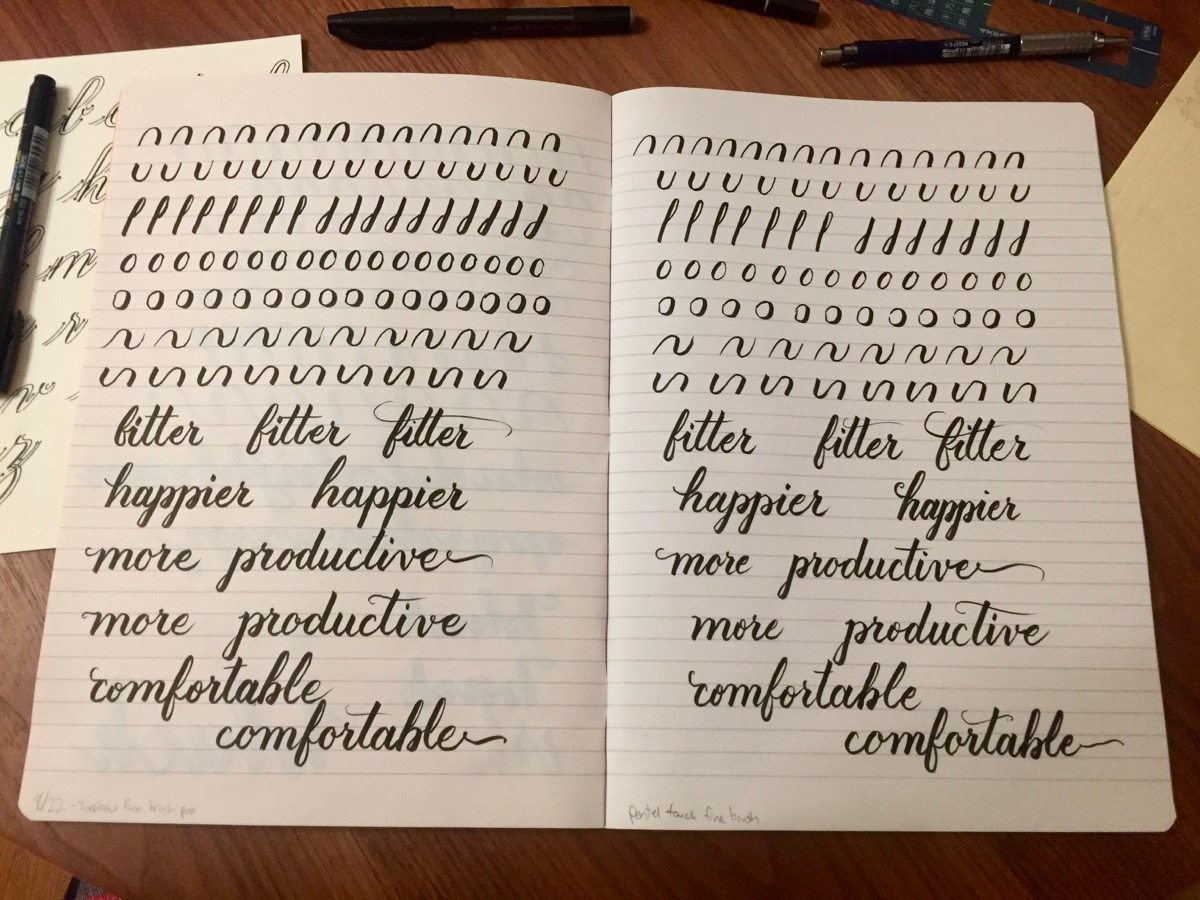 fitter fitter fitter
happier happier
more productive
more productive
comfortable
comfortable
8/22 - Tombow fine brush pen
fitter fitter fitter
happier happier
more productive
more productive
comfortable
comfortable
pentel touch fine brush